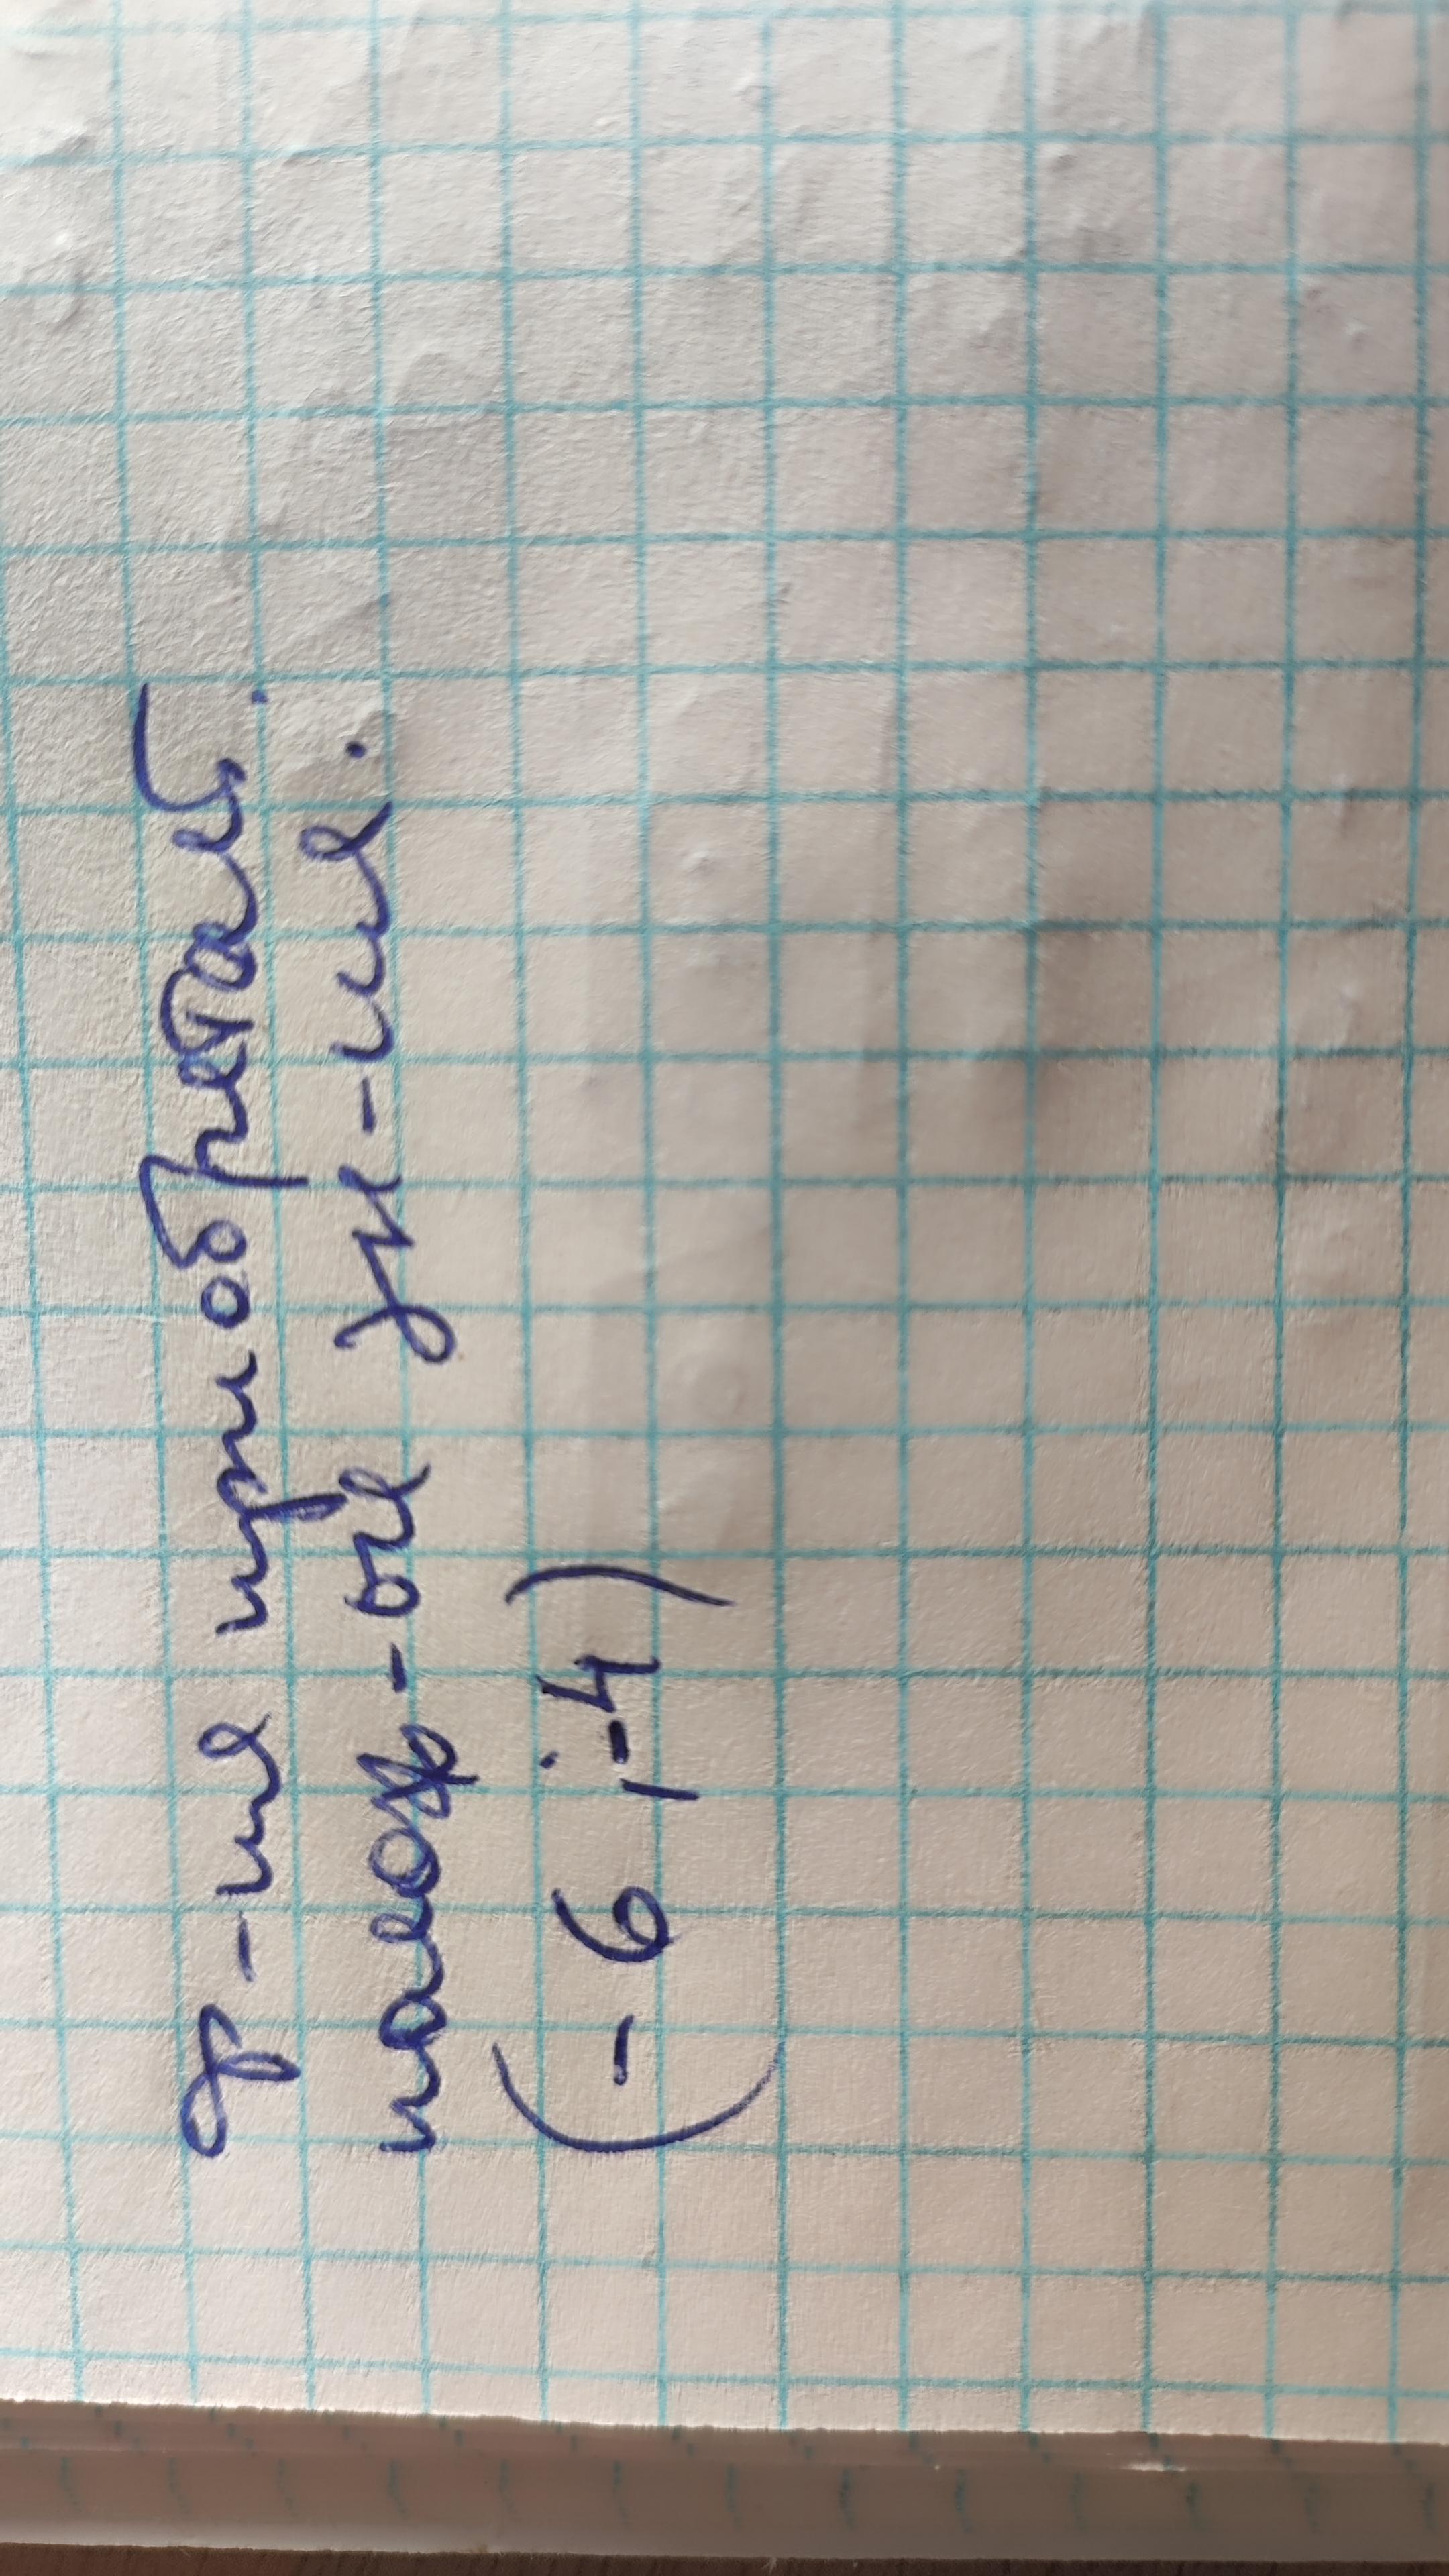 ф-ие приобретает.
полож-ое зн-ие.
(-6;-4)